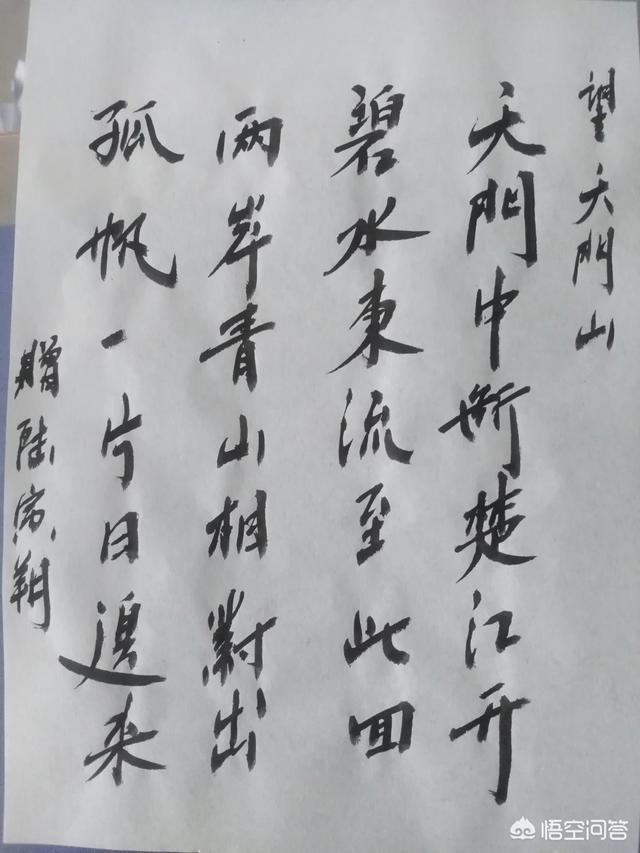 望天門山
天門中断楚江开
碧水東流至此回
两岸青山相對出
孤帆一片日邊来
贈陆
悟空问答